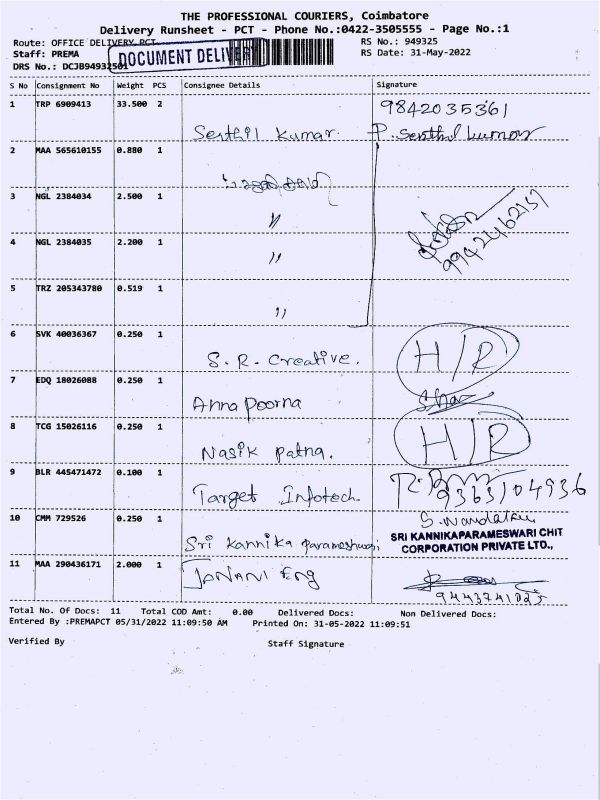 THE PROFESSIONAL COURIERS, Coimbatore
Delivery Runsheet - PCT - Phone No.:0422-3505555 - Page No.:1
Route: OFFICE DELIVERY PCT
RS No.: 949325
Staff: PREMA
DOCUMENT DELIVERY
RS Date: 31-May-2022
DRS No.: DCJB94932501
S No Consignment No Weight PCS Consignee Details Signature
9842035361
1 TRP 6909413 33.500 2
Senthil Kumar. P. Senthil kumar
2 MAA 565610155 0.880 1
3 NGL 2384034 2.500 1
"
4 NGL 2384035 2.200 1
"
9942462137
5 TRZ 205343780 0.519 1
"
6 SVK 40036367 0.250 1
S. R. Creative. H/R
7 EDQ 18026088 0.250 1
Anna Poorna
8 TCG 15026116 0.250 1
Nasik Patna. H/R
9 BLR 445471472 0.100 1
Target Infotech. 9363104936
10 CMM 729526 0.250 1
Sri Kannika Parameshwari
SRI KANNIKAPARAMESWARI CHIT
CORPORATION PRIVATE LTD.,
11 MAA 290436171 2.000 1
JANANI Eng
9443741025
Total No. Of Docs: 11 Total COD Amt: 0.00 Delivered Docs: Non Delivered Docs:
Entered By :PREMAPCT 05/31/2022 11:09:50 AM Printed On: 31-05-2022 11:09:51
Verified By Staff Signature